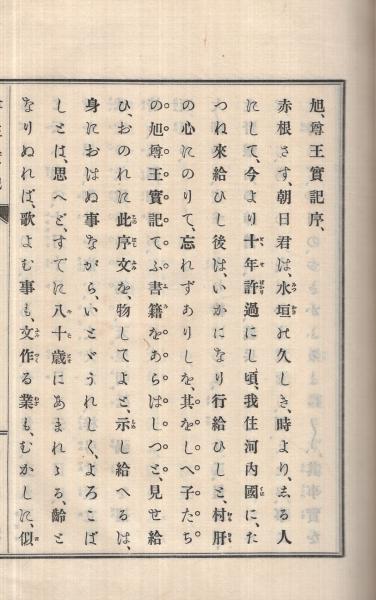 旭、尊王實記序、
赤根さす、朝日君は、水垣の久しき、時より、ゑる人
にして、今より十年許過にし頃、我住河内國に、た
つね來給ひし後は、いかになり行給ひしと、村肝
の心にのりて、忘れずありしを、其をしへ子たち
の旭尊王實記てふ書籍をあらはしつと、見せ給
ひ、おのれに此序文を、物してよと、示し給へるは、
身におはぬ事ながら、いとゞうれしく、よろこば
しとは、思へど、すでに八十歳にあまれゝる、齢と
なりぬれば、歌よむ事も、文作る業も、むかしに、似